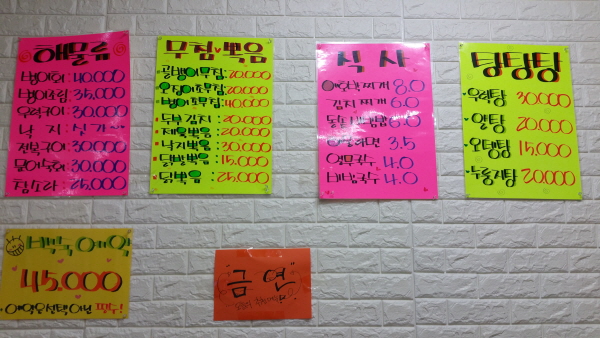 해물류
병어회 : 40,000
병어조림 : 35,000
우럭구이 : 30,000
낙지 : 싯가
전복구이 : 30,000
문어숙회 : 30,000
참소라 : 25,000
무침♥볶음
골뱅이무침 : 20,000
오징어초무침 : 20,000
병어초무침 : 40,000
두부김치 : 20,000
제육볶음 : 20,000
낙지볶음 : 30,000
닭발볶음 : 15,000
닭볶음 : 25,000
식사
찌개 8.0
김치찌개 6.0
6.0
라면 3.5
열무국수 4.0
비빔국수 4.0
탕탕탕
우럭탕 30000
알탕 20,000
오뎅탕 15,000
누룽지탕 20,000
백숙예약
45,000
예약은선택아닌 필수!
금연